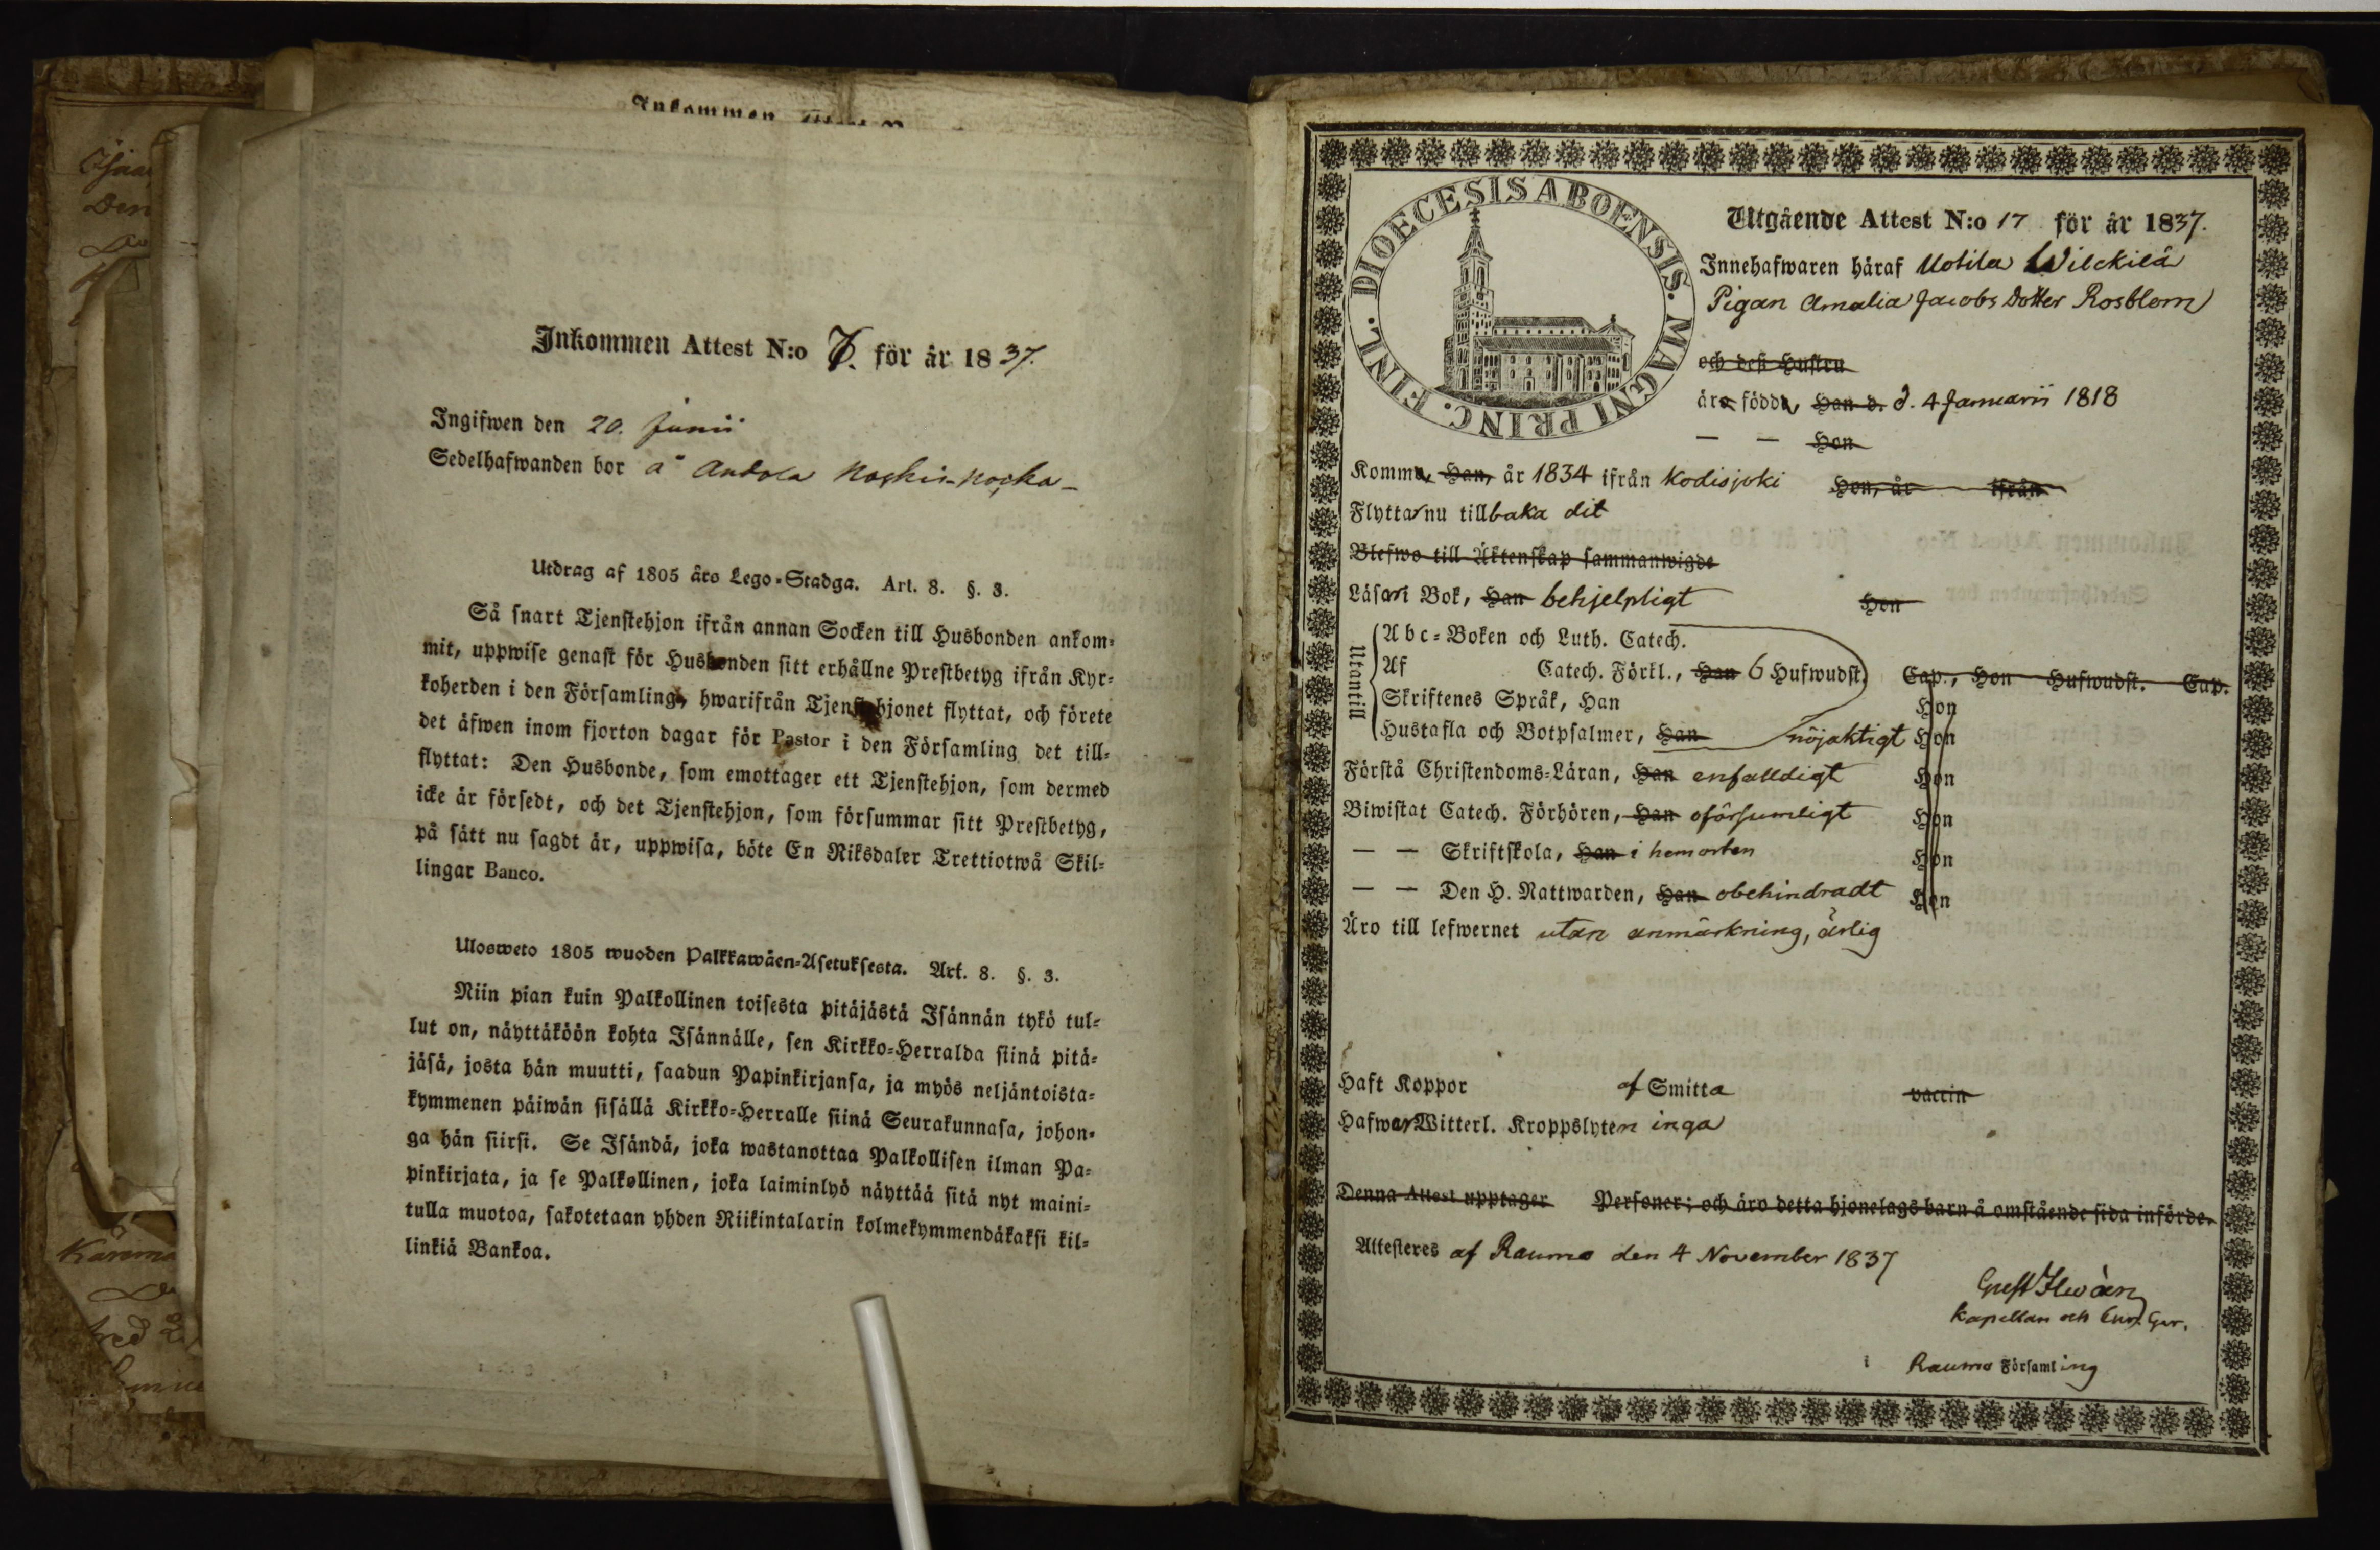 Inkommen Attest N:o 7. för år 1837.
Ingifwen den 20. Junii
Sedelhafwanden bor å Andola
Utdrag af 1805 års Lego-Stadga. Art. 8. §. 3.
Så snart Tjenstehjon ifrån annan Socken till Husbonden ankom-
mit, uppwise genast för Husbonden sitt erhållne Prestbetyg ifrån Kyr-
koherden i den Församling, hwarifrån Tjenstehjonet flyttat, och förete
det äfwen inom fjorton dagar för Pastor i den Församling det till-
flyttat: Den Husbonde, som emottager ett Tjenstehjon, som dermed
icke är försedt, och det Tjenstehjon, som försummar sitt Prestbetyg,
på sätt nu sagdt är, uppwisa, böte En Riksdaler Trettiotwå Skil-
lingar Banco.
Ulosweto 1805 wuoden Palkkawäen-Asetuksesta. Art. 8. §. 3.
Niin pian kuin Palkollinen toisesta pitäjästä Isännän tykö tul-
lut on, näyttäköön kohta Isännälle, sen Kirkko-Herralda siinä pitä-
jäsä, josta hän muutti, saadun Papinkirjansa, ja myös neljäntoista-
kymmenen päiwän sisällä Kirkko-Herralle siinä Seurakunnasa, johon-
ga hän siirsi. Se Isändä, joka wastanottaa Palkollisen ilman Pa-
pinkirjata, ja se Palkollinen, joka laiminlyö näyttää sitä nyt maini-
tulla muotoa, sakotetaan yhden Riikintalarin kolmekymmendäkaksi kil-
linkiä Bankoa.
DIOECESIS ABOENSIS. MAGNI PRINC. FINL.
Utgående Attest N:o 17 för år 1837.
Innehafwaren häraf Uotila Wilckilä
Pigan Amalia Jacobs Dotter Rosblom
och deß Hustru
äro födda, Han d. d. 4 Januarii 1818
— — Hon
Komma, Han, år 1834 ifrån Kodisjoki Hon, år ifrån
Flyttar nu tillbaka dit
Blefwo till Äktenskap sammanwigde
Läsa i Bok, Han behjelpligt Hon
Utantill
Abc-Boken och Luth. Catech.
Af Catech. Förkl., Han 6 Hufwudst. Cap., Hon Hufwudst. Cap.
Skriftenes Språk, Han Hon
Hustafla och Botpsalmer, Han nöjaktigt Hon
Förstå Christendoms-Läran, Han enfalldigt Hon
Biwistat Catech. Förhören, Han oförsumligt Hon
— — Skriftskola, Han i hemorten Hon
— — Den H. Nattwarden, Han obehindradt Hon
Äro till lefwernet utan anmärkning, ärlig
Haft Koppor af Smitta vaccin
Hafwer Witterl. Kroppslyten inga
Denna Attest upptager Personer; och äro detta hjonelags barn å omstående sida införde.
Attesteres af Raumo den 4 November 1837
Kapellan och
i Raumo Församling